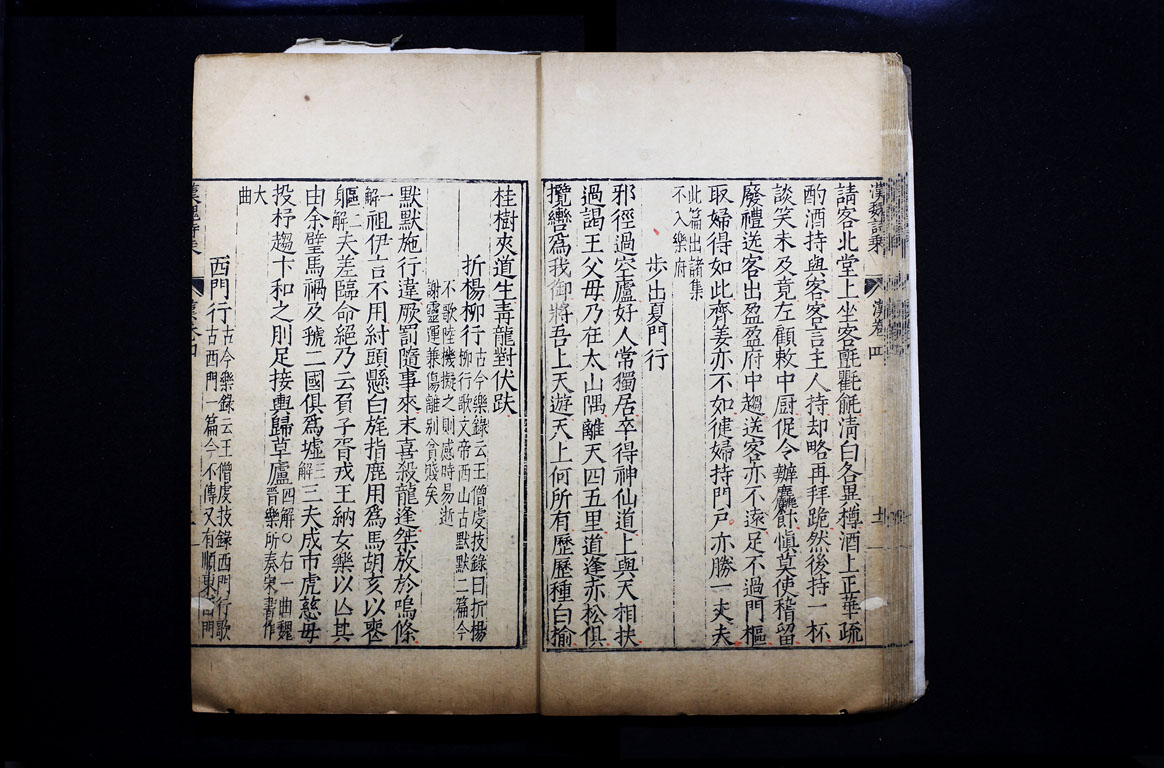 漢魏詩乘
漢卷四
十一
請客北堂上坐客氈氍毹清白各異樽酒上正華疏
酌酒持與客客言主人持却略再拜跪然後持一杯
談笑未及竟左顧敕中厨促令辦麤飰慎莫使稽留
廢禮送客出盈盈府中趨送客亦不遠足不過門樞
取婦得如此齊姜亦不如健婦持門戶亦勝一丈夫
此篇出諸集
不入樂府
步出夏門行
邪徑過空廬好人常獨居卒得神仙道上與天相扶
過謁王父母乃在太山隅離天四五里道逢赤松俱
攬轡爲我御將吾上天遊天上何所有歷歷種白榆
桂樹夾道生青龍對伏趺
折楊柳行古今樂錄云王僧虔技錄曰折楊
柳行歌文帝西山古默默二篇今
不歌陸機擬之則感時易逝
謝靈運兼傷離别貧賤矣
默默施行違厥罰隨事來末喜殺龍逢桀放於鳴條
一解祖伊言不用紂頭懸白旄指鹿用爲馬胡亥以喪
軀二解夫差臨命絕乃云負子胥戎王納女樂以亾其
由余璧馬禍及虢二國俱爲墟三解三夫成市虎慈母
投杼趨卞和之刖足接輿歸草廬四解○右一曲魏
晉樂所奏宋書作
大曲
西門行古今樂錄云王僧虔技錄西門行歌
古西門一篇今不傳又有順東西門